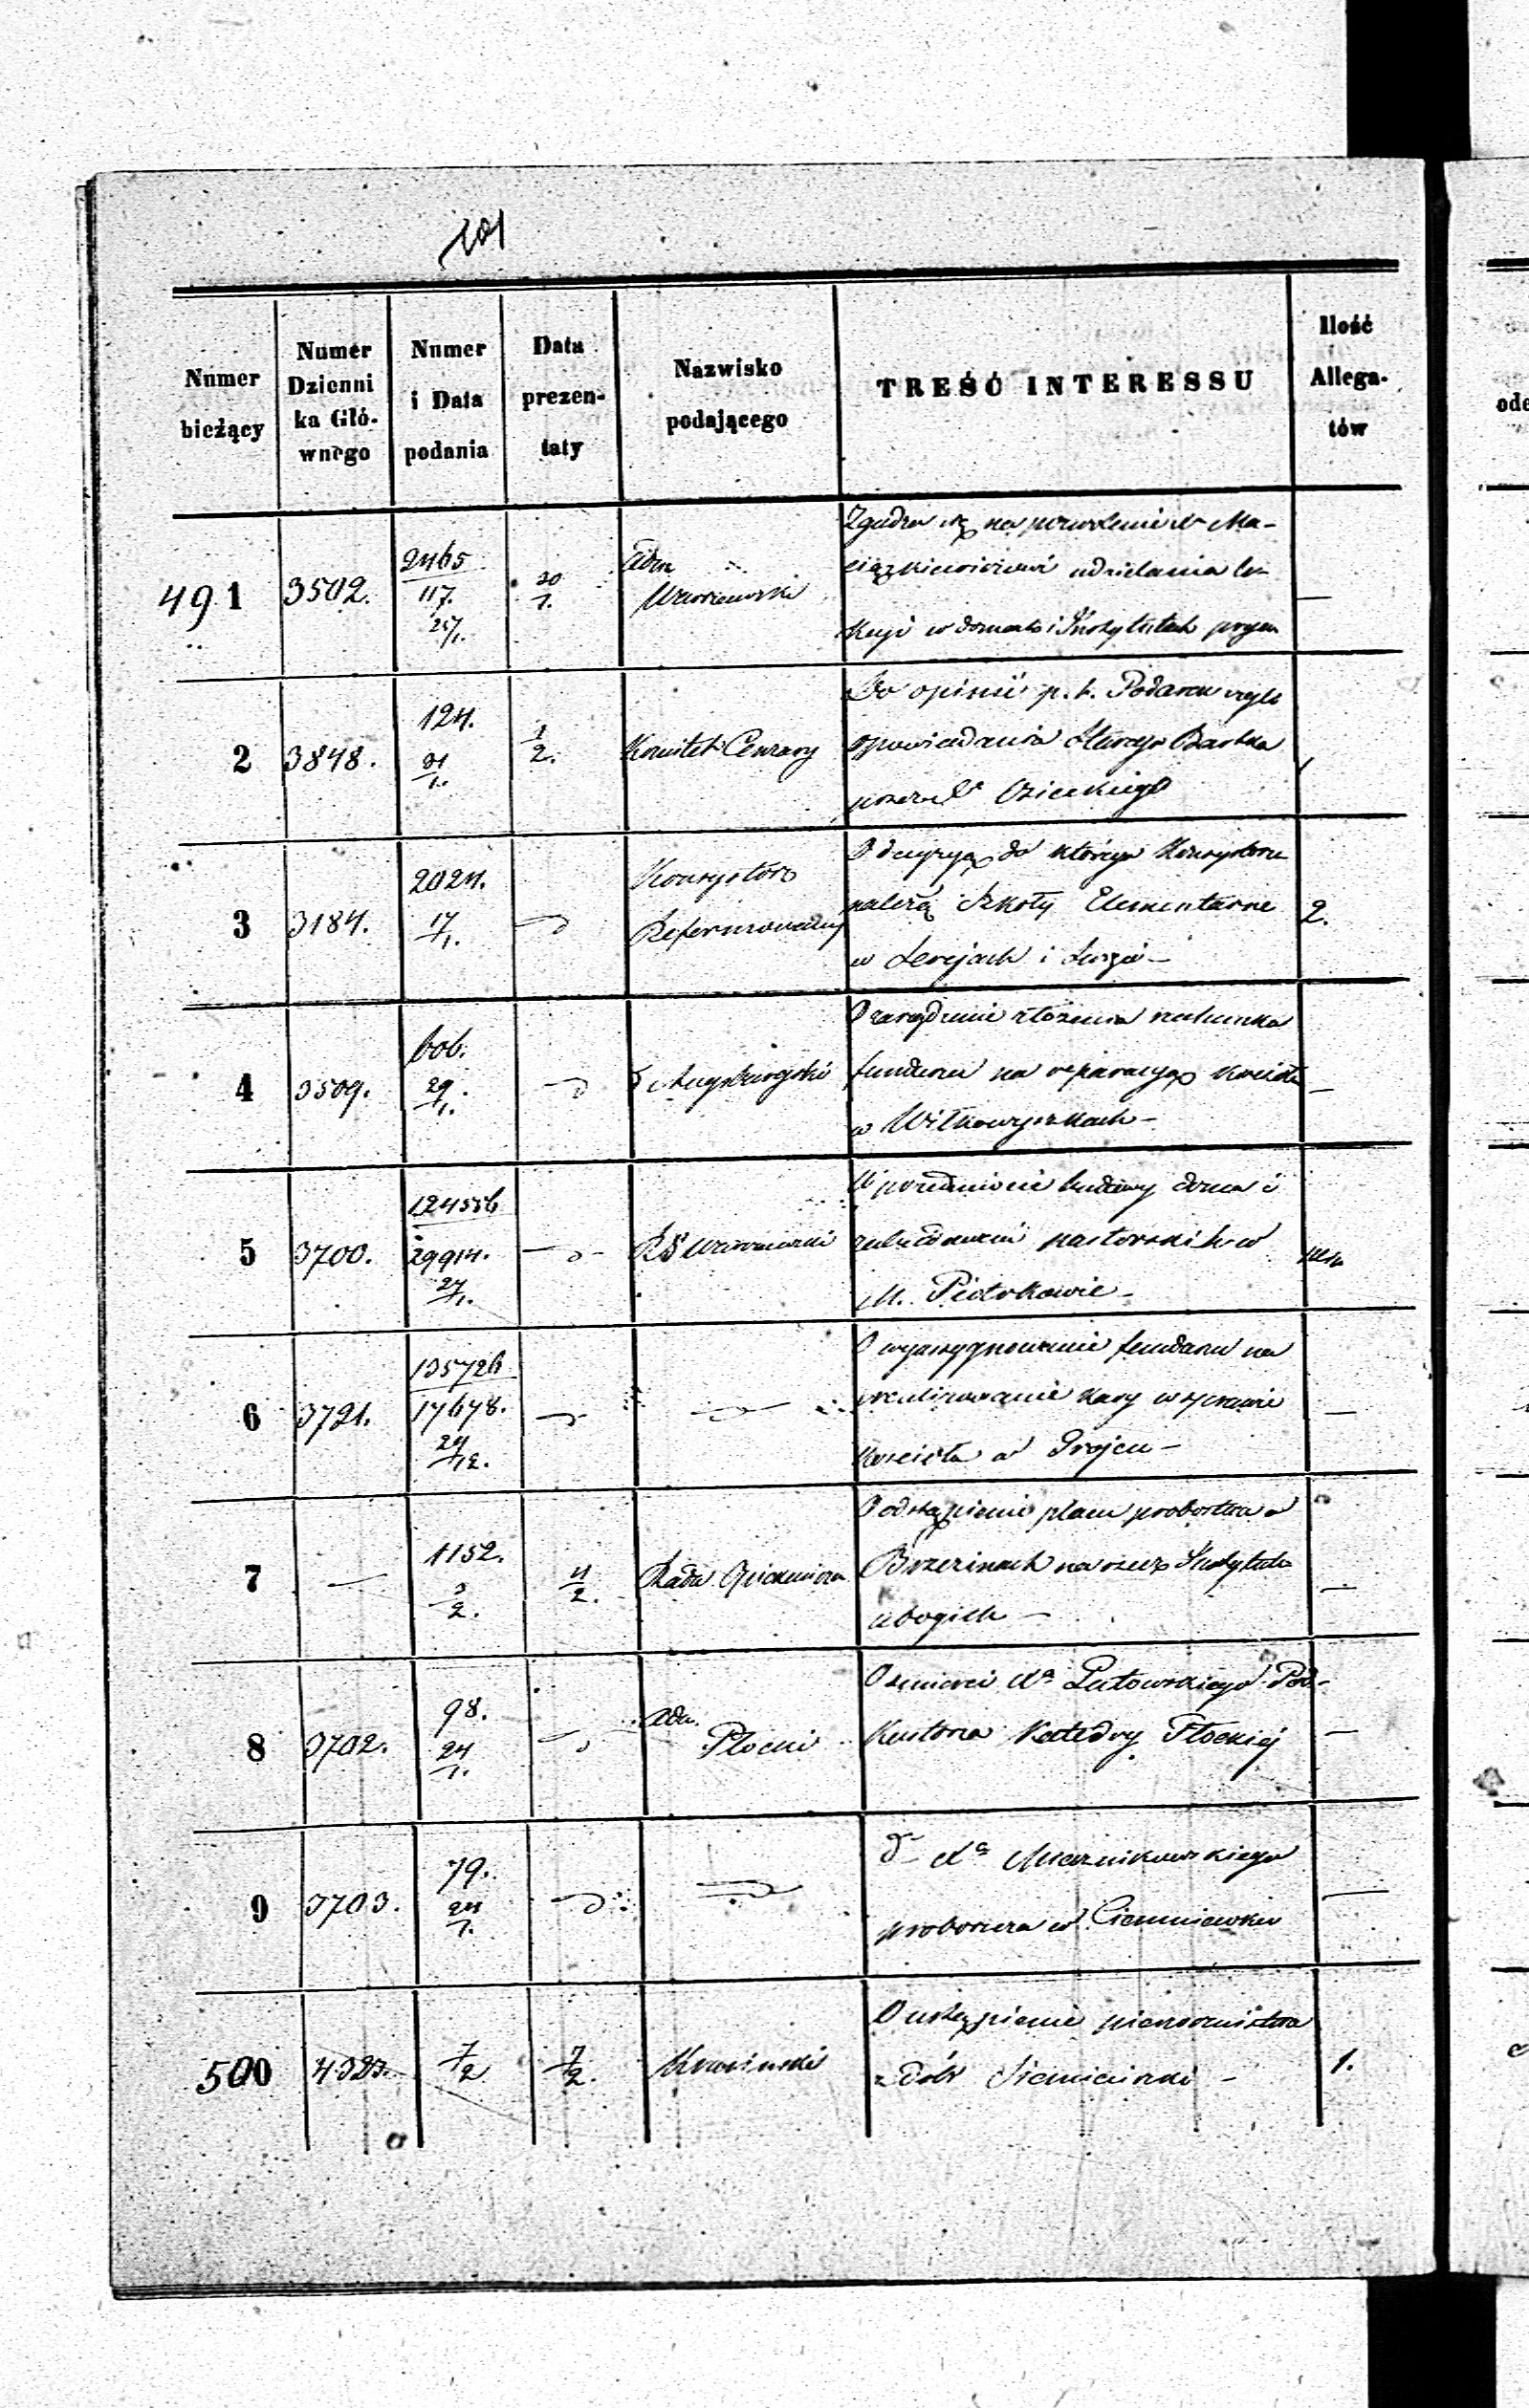 101
Numer bieżący
Numer Dzienni ka Głó- wnego
Numer i Data podania
Data prezen- taty
Nazwisko podającego
TREŚĆ INTERESSU
Ilość Allega- tów
491 3502. 2465 117. 25/1. 30/1. Adm Warszawski
Zgadza się na Ma-
udzielania le-
kcji w domach i Instytutach
—
2 3848. 124. 31/1. 1/2. Komitet Cenzury
Do opinii p. t. Podarek czyli
opowiadania Starego Bartka
przez Osieckiego
1
3 3184. 2024. 17/1. Konsystorz Reformowany
O decyzyą do którego Konsystorza
należą Szkoły Elementarne
w i
2.
4 3509. 606. 29/1. Augsburgski
O zarządzenie złożenia rachunku
funduszu na reparacyą kościoła
w Wiłkowyszkach —
—
5 3700. 124556 29914. 27/1. R G Warszawski
W przedmiocie budowy domu i
zabudowań pastorskich w
M. Piotrkowie —
6 3721. 135726 17678. 24/12.
O wyassygnowanie funduszu na
zrealizowanie kary w sprawie
kościoła w Grojcu —
—
7 — 1152. 3/2. 4/2. Rada Opiekuńcza
O odstąpienie placu probostwa w
Brzezinach na rzecz Instytutu
ubogich —
—
8 3702. 98. 24/1. Adm. Płocki
O śmierci Xa Lutowskiego Pod-
kustosza Katedry Płockiej
—
9 3703. 79. 24/1.
do Xa
proboszcza w Ciemniewku
—
500 4323. 7/2 7/2. Krasiński
O ustąpienie pierwszeństwa
z dób
1.